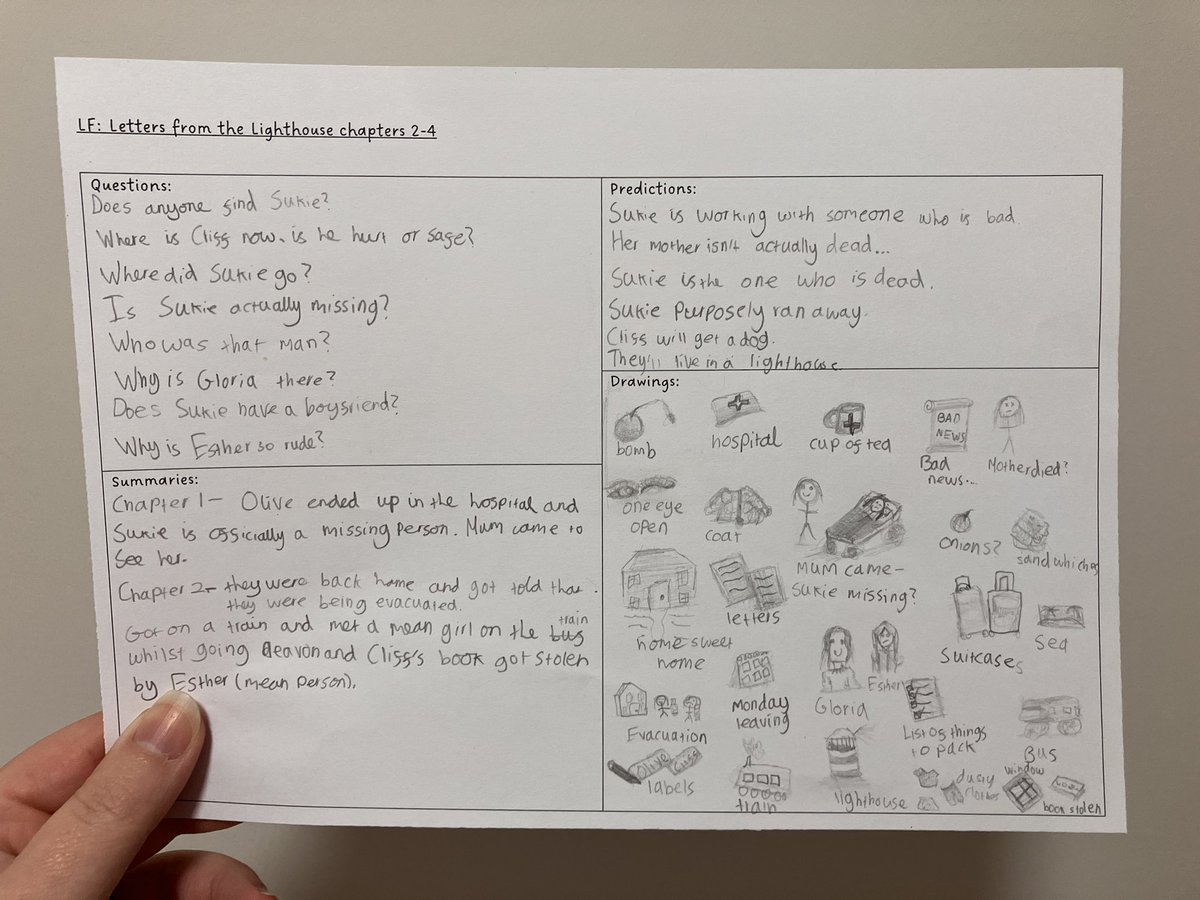 LF: Letters from the Lighthouse chapters 2-4
Questions:
Does anyone find Sukie?
Where is Cliff now. is he hurt or safe?
Where did Sukie go?
Is Sukie actually missing?
Who was that man?
Why is Gloria there?
Does Sukie have a boyfriend?
Why is Esther so rude?
Summaries:
Chapter 1- Olive ended up in the hospital and
Sukie is officially a missing person. Mum came to
see her.
Chapter 2- they were back home and got told that
they were being evacuated.
Got on a train and met a mean girl on the bus train
whilst going Deavon and Cliff's book got stolen
by Esther (mean person).
Predictions:
Sukie is working with someone who is bad.
Her mother isn't actually dead...
Sukie is the one who is dead.
Sukie Purposely ran away.
Cliff will get a dog.
They'll live in a lighthouse
Drawings:
bomb
hospital
cup of tea
BAD
NEWS
Bad
news...
Mother died?
one eye
open
coat
MUM came-
Sukie missing?
onions?
sandwiches
home sweet
home
letters
Suitcases
Sea
Evacuation
Monday
leaving
Gloria
Esther
List of things
to pack
Bus
Olive
Cliff
labels
train
lighthouse
dusty
clothes
window
book stolen